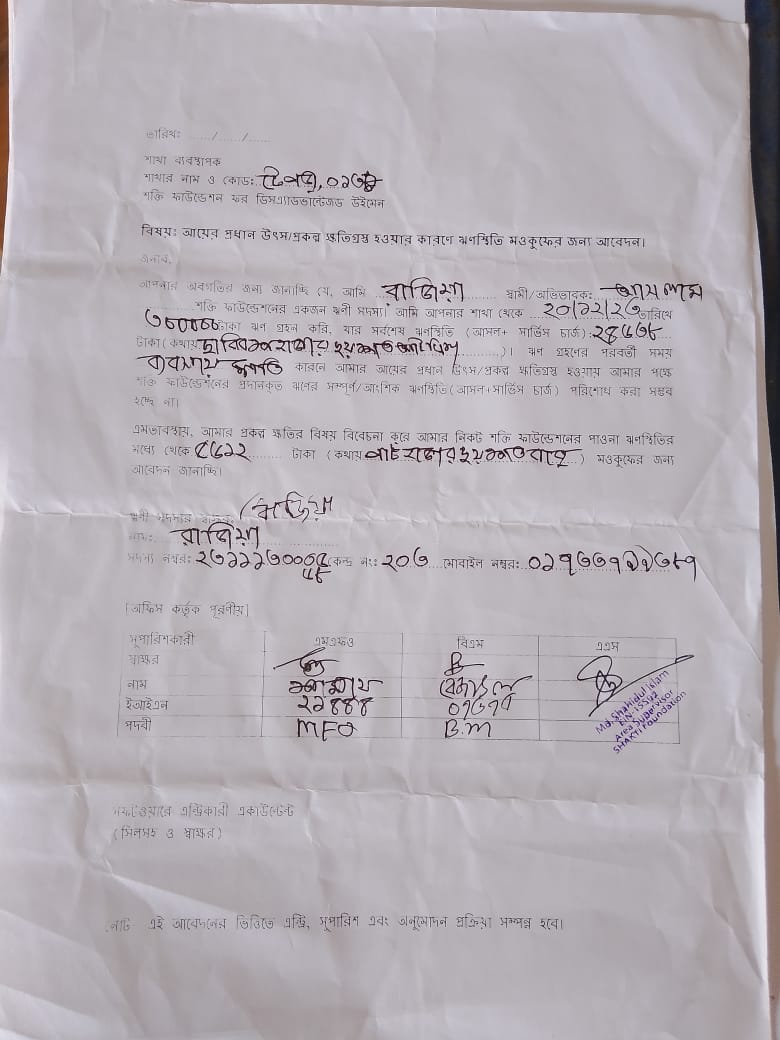 তারিখঃ ....../....../......
শাখা ব্যবস্থাপক
শাখার নাম ও কোডঃ
শক্তি ফাউন্ডেশন ফর ডিসএ্যাডভান্টেজড উইমেন
বিষয়ঃ আয়ের প্রধান উৎস/প্রকল্প ক্ষতিগ্রস্থ হওয়ার কারণে ঋণস্থিতি মওকুফের জন্য আবেদন।
জনাব,
আপনার অবগতির জন্য জানাচ্ছি যে, আমি রাজিয়া স্বামী/অভিভাবকঃ
শক্তি ফাউন্ডেশনের একজন ঋণী সদস্য। আমি আপনার শাখা থেকে ২০/১২/২৩ তারিখে
টাকা ঋণ গ্রহন করি, যার সর্বশেষ ঋণস্থিতি (আসল+ সার্ভিস চার্জ)
টাকা (কথায় হাজার ছয়শত )। ঋণ গ্রহণের পরবর্তী সময়
ব্যবসায় ক্ষতি কারনে আমার আয়ের প্রধান উৎস/প্রকল্প ক্ষতিগ্রস্থ হওয়ায় আমার পক্ষে
শক্তি ফাউন্ডেশনের প্রদানকৃত ঋণের সম্পূর্ণ/আংশিক ঋণস্থিতি(আসল+সার্ভিস চার্জ) পরিশোধ করা সম্ভব
হচ্ছে না।
এমতাবস্থায়, আমার প্রকল্প ক্ষতির বিষয় বিবেচনা করে আমার নিকট শক্তি ফাউন্ডেশনের পাওনা ঋণস্থিতির
মধ্যে থেকে ৫৬১২ টাকা (কথায় পাঁচ হাজার ছয়শত বার) মওকুফের জন্য
আবেদন জানাচ্ছি।
রাজিয়া
ঋণী সদস্যার স্বাক্ষর
নামঃ রাজিয়া
সদস্য নম্বরঃ কেন্দ্র নংঃ ২০৩ মোবাইল নম্বরঃ
[অফিস কর্তৃক পূরণীয়]
সুপারিশকারী এমএফও বিএম এএস
স্বাক্ষর
নাম
ইআইএন ২১৪৪৪
পদবী MFO B.M
Md. Shahidul Islam
EIN-15392
Area Supervisor
SHAKTI Foundation
সফটওয়্যারে এন্ট্রিকারী একাউন্টেন্ট
(সিলসহ ও স্বাক্ষর)
নোট এই আবেদনের ভিত্তিতে এন্ট্রি, সুপারিশ এবং অনুমোদন প্রক্রিয়া সম্পন্ন হবে।